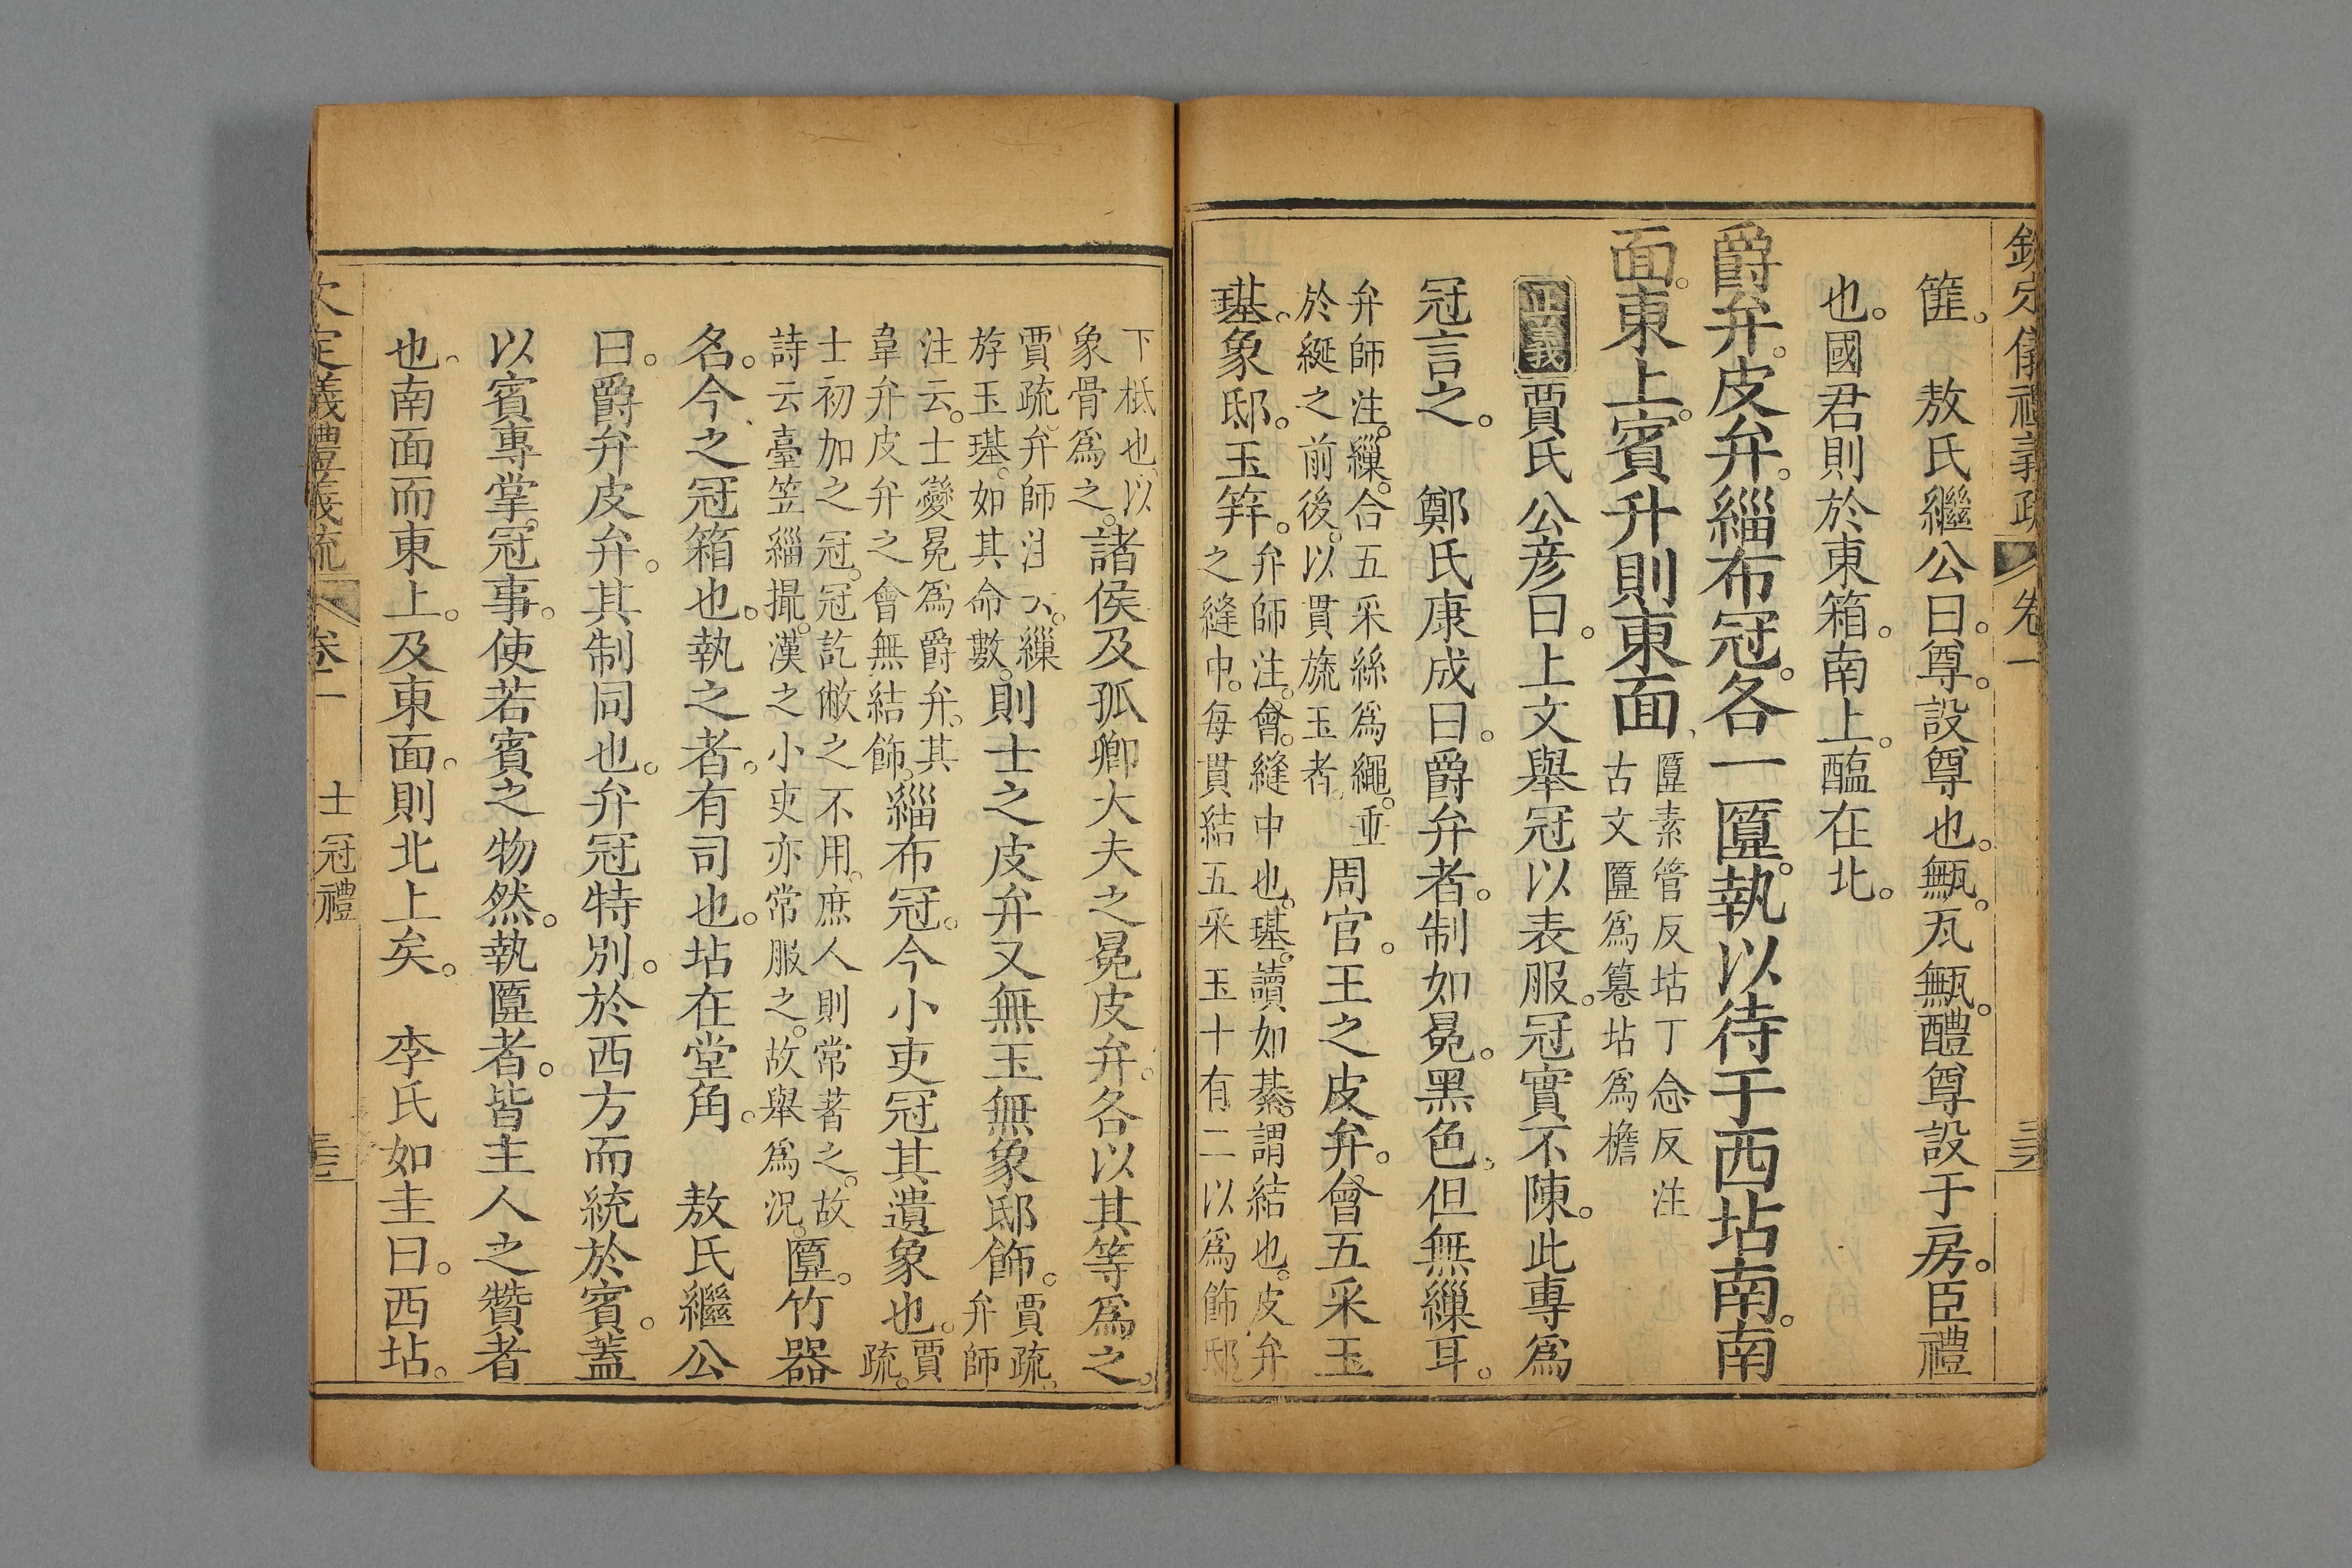 欽定儀禮義疏 卷一
篚。 敖氏繼公曰。尊。設尊也。甒。瓦甒。醴尊設于房。臣禮
也。國君則於東箱。南上。醢在北。
爵弁。皮弁。緇布冠。各一匴。執以待于西坫南。南
面。東上。賓升則東面
匴素管反坫丁念反注
古文匴爲篹坫爲檐
正義 賈氏公彦曰。上文舉冠以表服。冠實不陳。此專爲
冠言之。 鄭氏康成曰。爵弁者。制如冕。黑色。但無繅耳。
弁師注。繅。合五采絲爲繩。垂
於綖之前後。以貫旒玉者。
周官。王之皮弁。會五采玉
璂。象邸。玉笄。
弁師注。會。縫中也。璂。讀如綦。謂結也。皮弁
之縫中。每貫結五采玉十有二以爲飾邸
下柢也。以
象骨爲之。
諸侯及孤卿大夫之冕皮弁。各以其等爲之。
賈疏。弁師注云。繅
斿玉璂。如其命數。
則士之皮弁又無玉無象邸飾。
賈疏。
弁師
注云。士變冕爲爵弁。其
韋弁皮弁之會無結飾。
緇布冠。今小吏冠其遺象也。
賈
疏。
士初加之冠。冠訖敝之不用。庶人則常著之。故
詩云臺笠緇撮。漢之小吏亦常服之。故舉爲況。
匴。竹器
名。今之冠箱也。執之者。有司也。坫在堂角。 敖氏繼公
曰。爵弁皮弁。其制同也。弁冠特別。於西方而統於賓。蓋
以賓專掌冠事。使若賓之物然。執匴者。皆主人之贊者
也。南面而東上。及東面。則北上矣。 李氏如圭曰。西坫。
欽定儀禮義疏 卷一 士冠禮